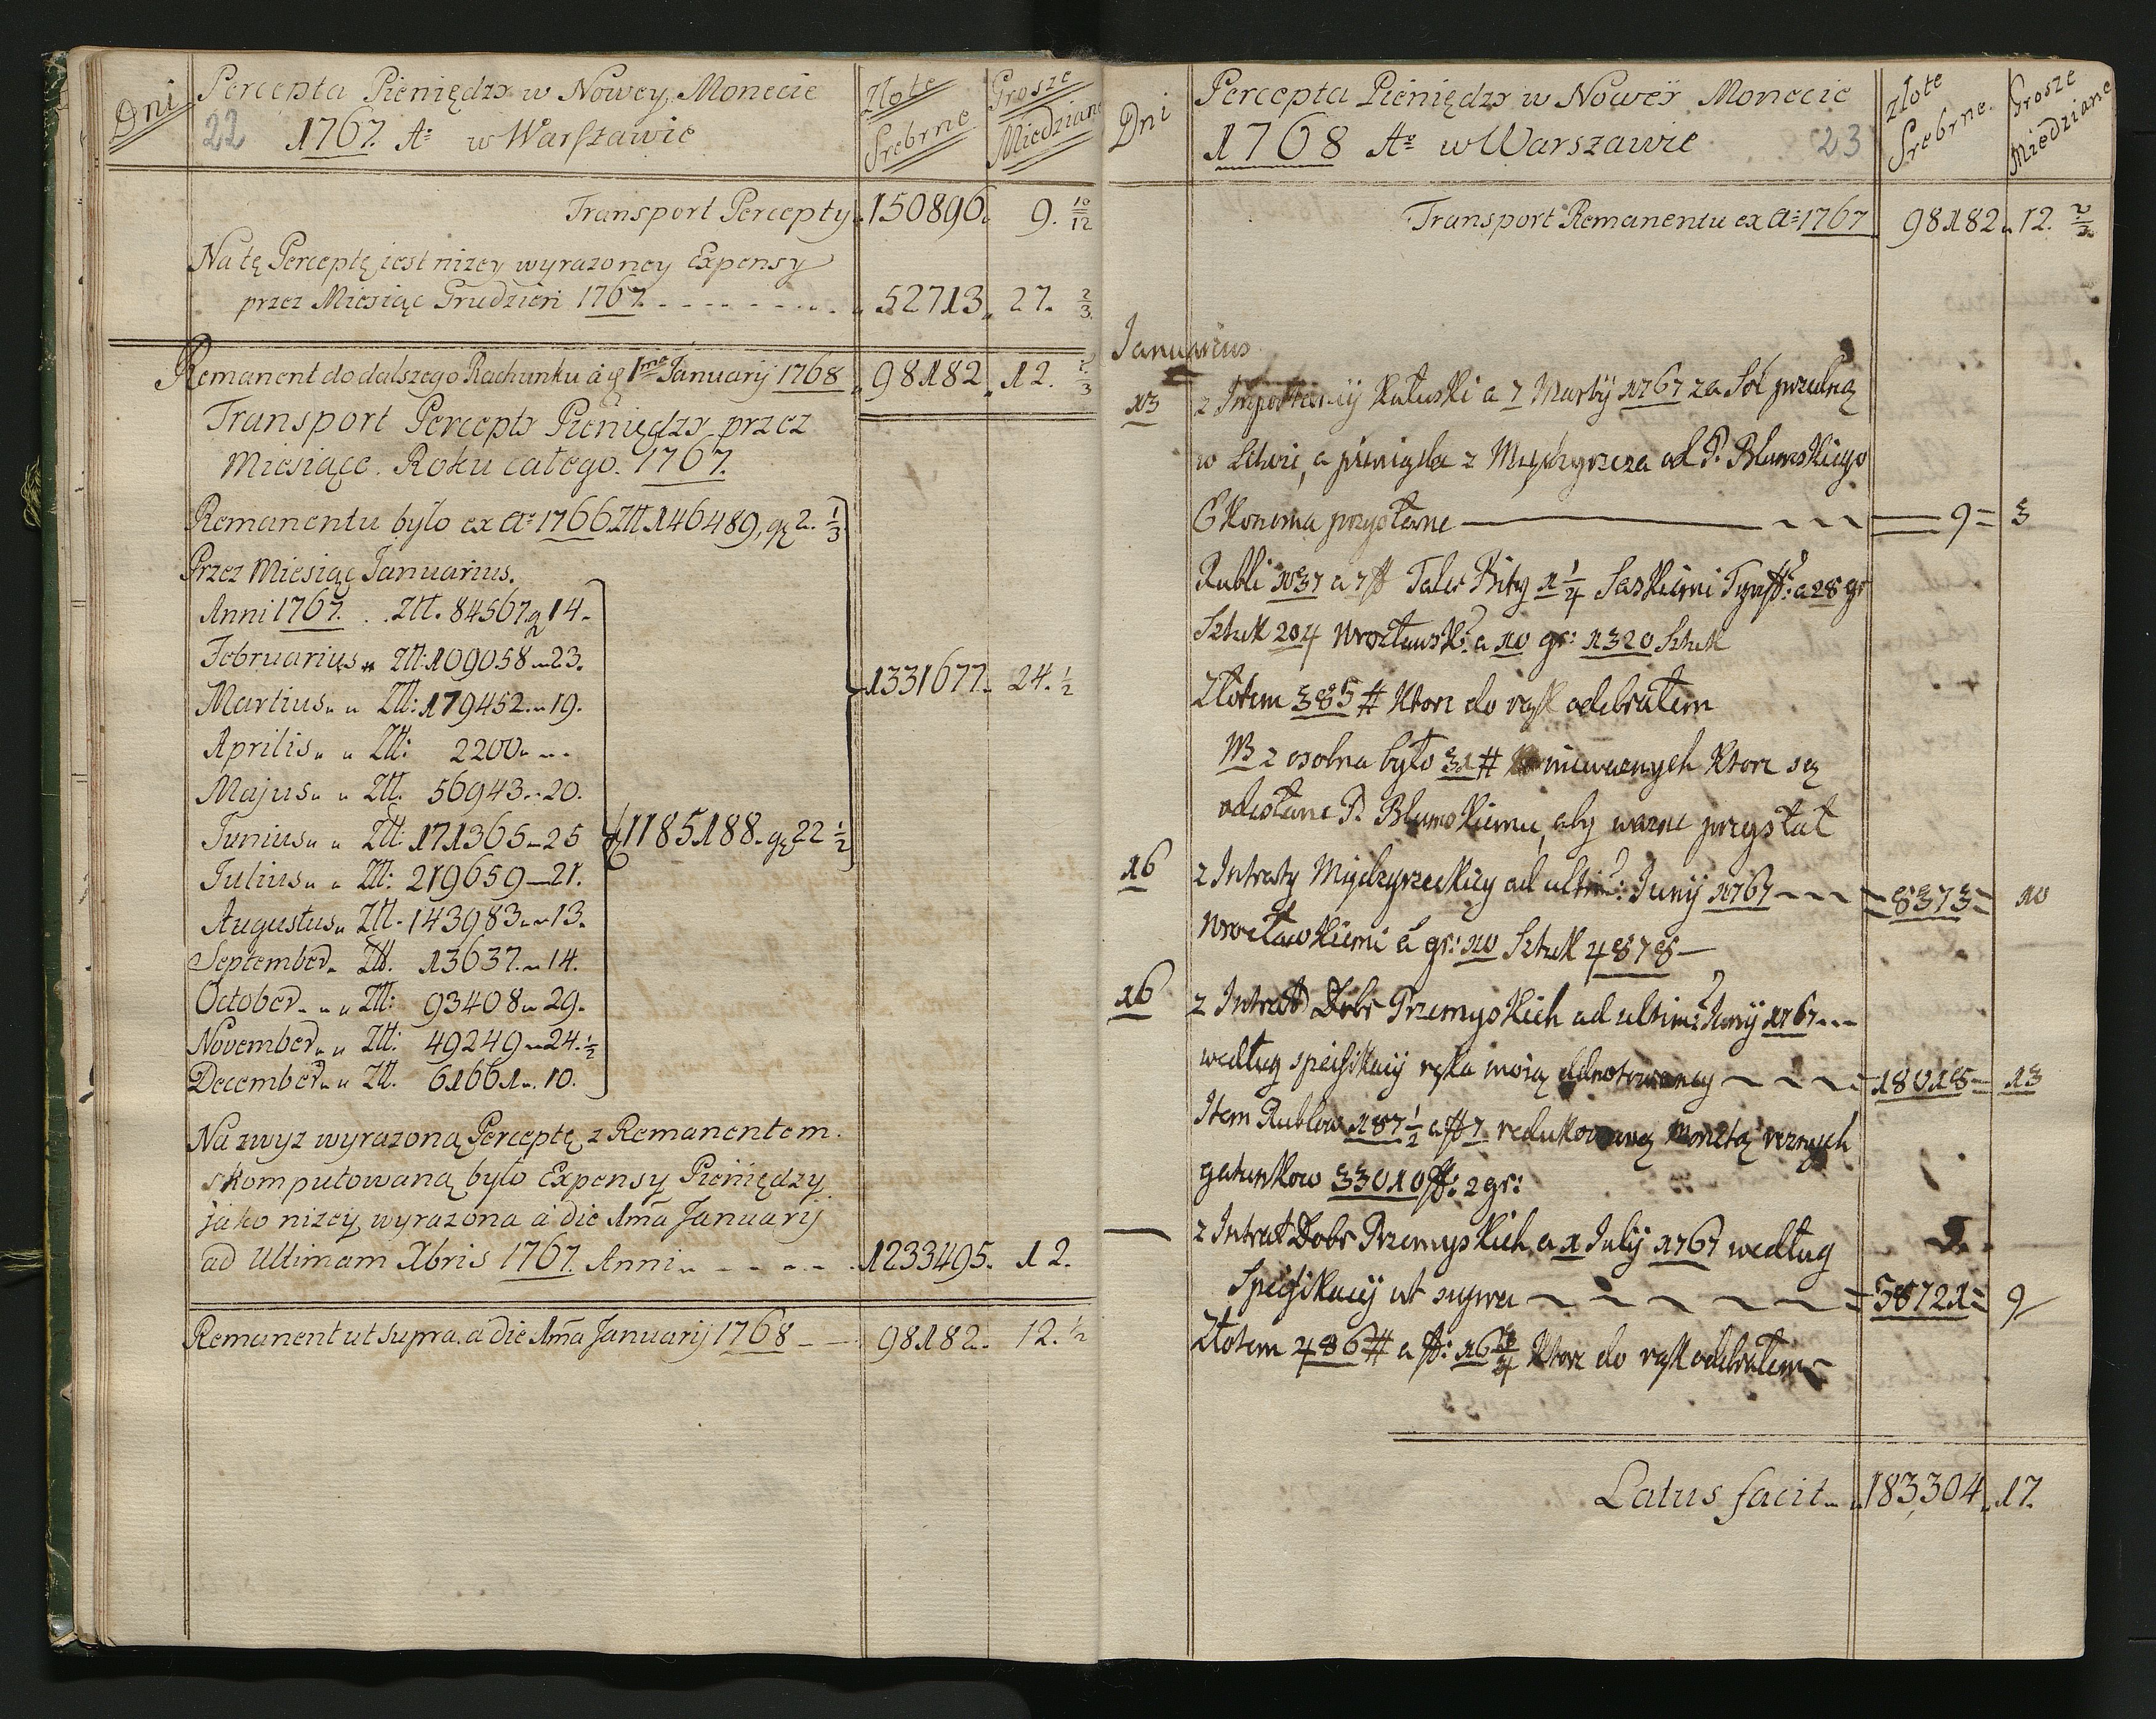 Dni
Percepta Pieniędzy w Nowey Monecie
22 1767. Aº w Warszawie
Złote Srebrne
Grosze Miedziane
Transport Percepty 150896. 9. 10/12
Na tę Perceptę jest nizey wyrazoney Expensy
przez Miesiąc Grudzień 1767. 52713. 27. 2/3
Remanent do dalszego Rachunku a d 1ma Januarij 1768 98182. 12. 2/3
Transport Percepty Pieniędzy przez
Miesiące Roku całego 1767.
Remanentu było ex Aº 1766 Złł 146489, gr 2. 1/3
Przez Miesiąc Januarius.
Anni 1767. Złł. 84567 g 14.
Februarius Złł: 109058 - 23.
Martius Złł: 179452 - 19.
Aprilis Złł: 2200
Majus Złł. 56943 - 20.
Junius Złł: 171365 - 25
1185188. gr 22 1/2
1331677. 24. 1/2
Julius Złł: 219659 - 21.
Augustus Złł. 143983 - 13.
September Złł. 13637. 14.
October Złł: 93408 29.
November Złł: 49249 - 24. 1/2
December Złł. 61661. 10.
Na zwyz wyrazoną Perceptę z Remanentem
skomputowaną było Expensy Pieniędzy
jako nizey wyrazona a die 1ma Januarij
ad Ultimam Xbris 1767. Anni 1233495. 12.
Remanent ut supra a die 1ma Januarij 1768 98182. 12. 1/2
Dni
Percepta Pieniędzy w Nowey Monecie
1768 Aº w Warszawie 23
Złote Srebrne.
Grosze Miedziane
Transport Remanentu ex Aº 1767 98182. 12. 2/3
Januarius
13 z Importancij Kałuski a 7 Martij 1767 za Sól
w Litwie, a z od P.
Ekonoma przysłane 9 = 3
Rubli 1037 a 7 ff Taler Bity 1 1/4 Saskiemi Tynff: a 28 gr
Sztuk 204 Wrocławsk: a 10 gr: 1320 Sztuk
Złotem 385 # które do rąk odebrałem
NB z osobna było 31 # niewaznych które są
odesłane P. aby wazne przysłał
16 z Intraty Międzyrzeckiey ad ultim: Junij 1767 8373 = 10
Wrocławskiemi á gr: 10 Sztuk 4878
16 z Intrat Dobr Przemyskich ad ultim: Junij 1767
według specifikacij ręką moią adnotowaney 18018 = 13
Item Rublow 187 1/2 a ff 7 redukowaną Monetą roznych
gatunkow 33010 ff: 2 gr:
z Intrat Dobr Przemyskich a 1 Julij 1767 według
Specifikacij ut supra 58721 = 9
Złotem 486 # a ff: 16 3/4 które do rąk odebrałem
Latus facit 183,304. 17.